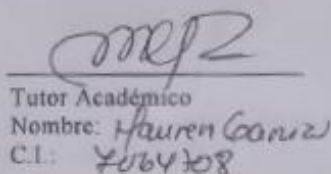 Tutor Académico
Nombre: Hauren
C.I.: 7064708